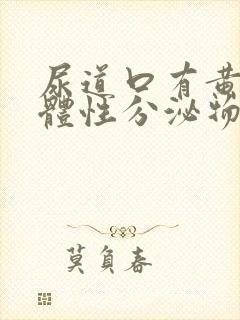 尿道口有黄
體性分泌物
莫負春